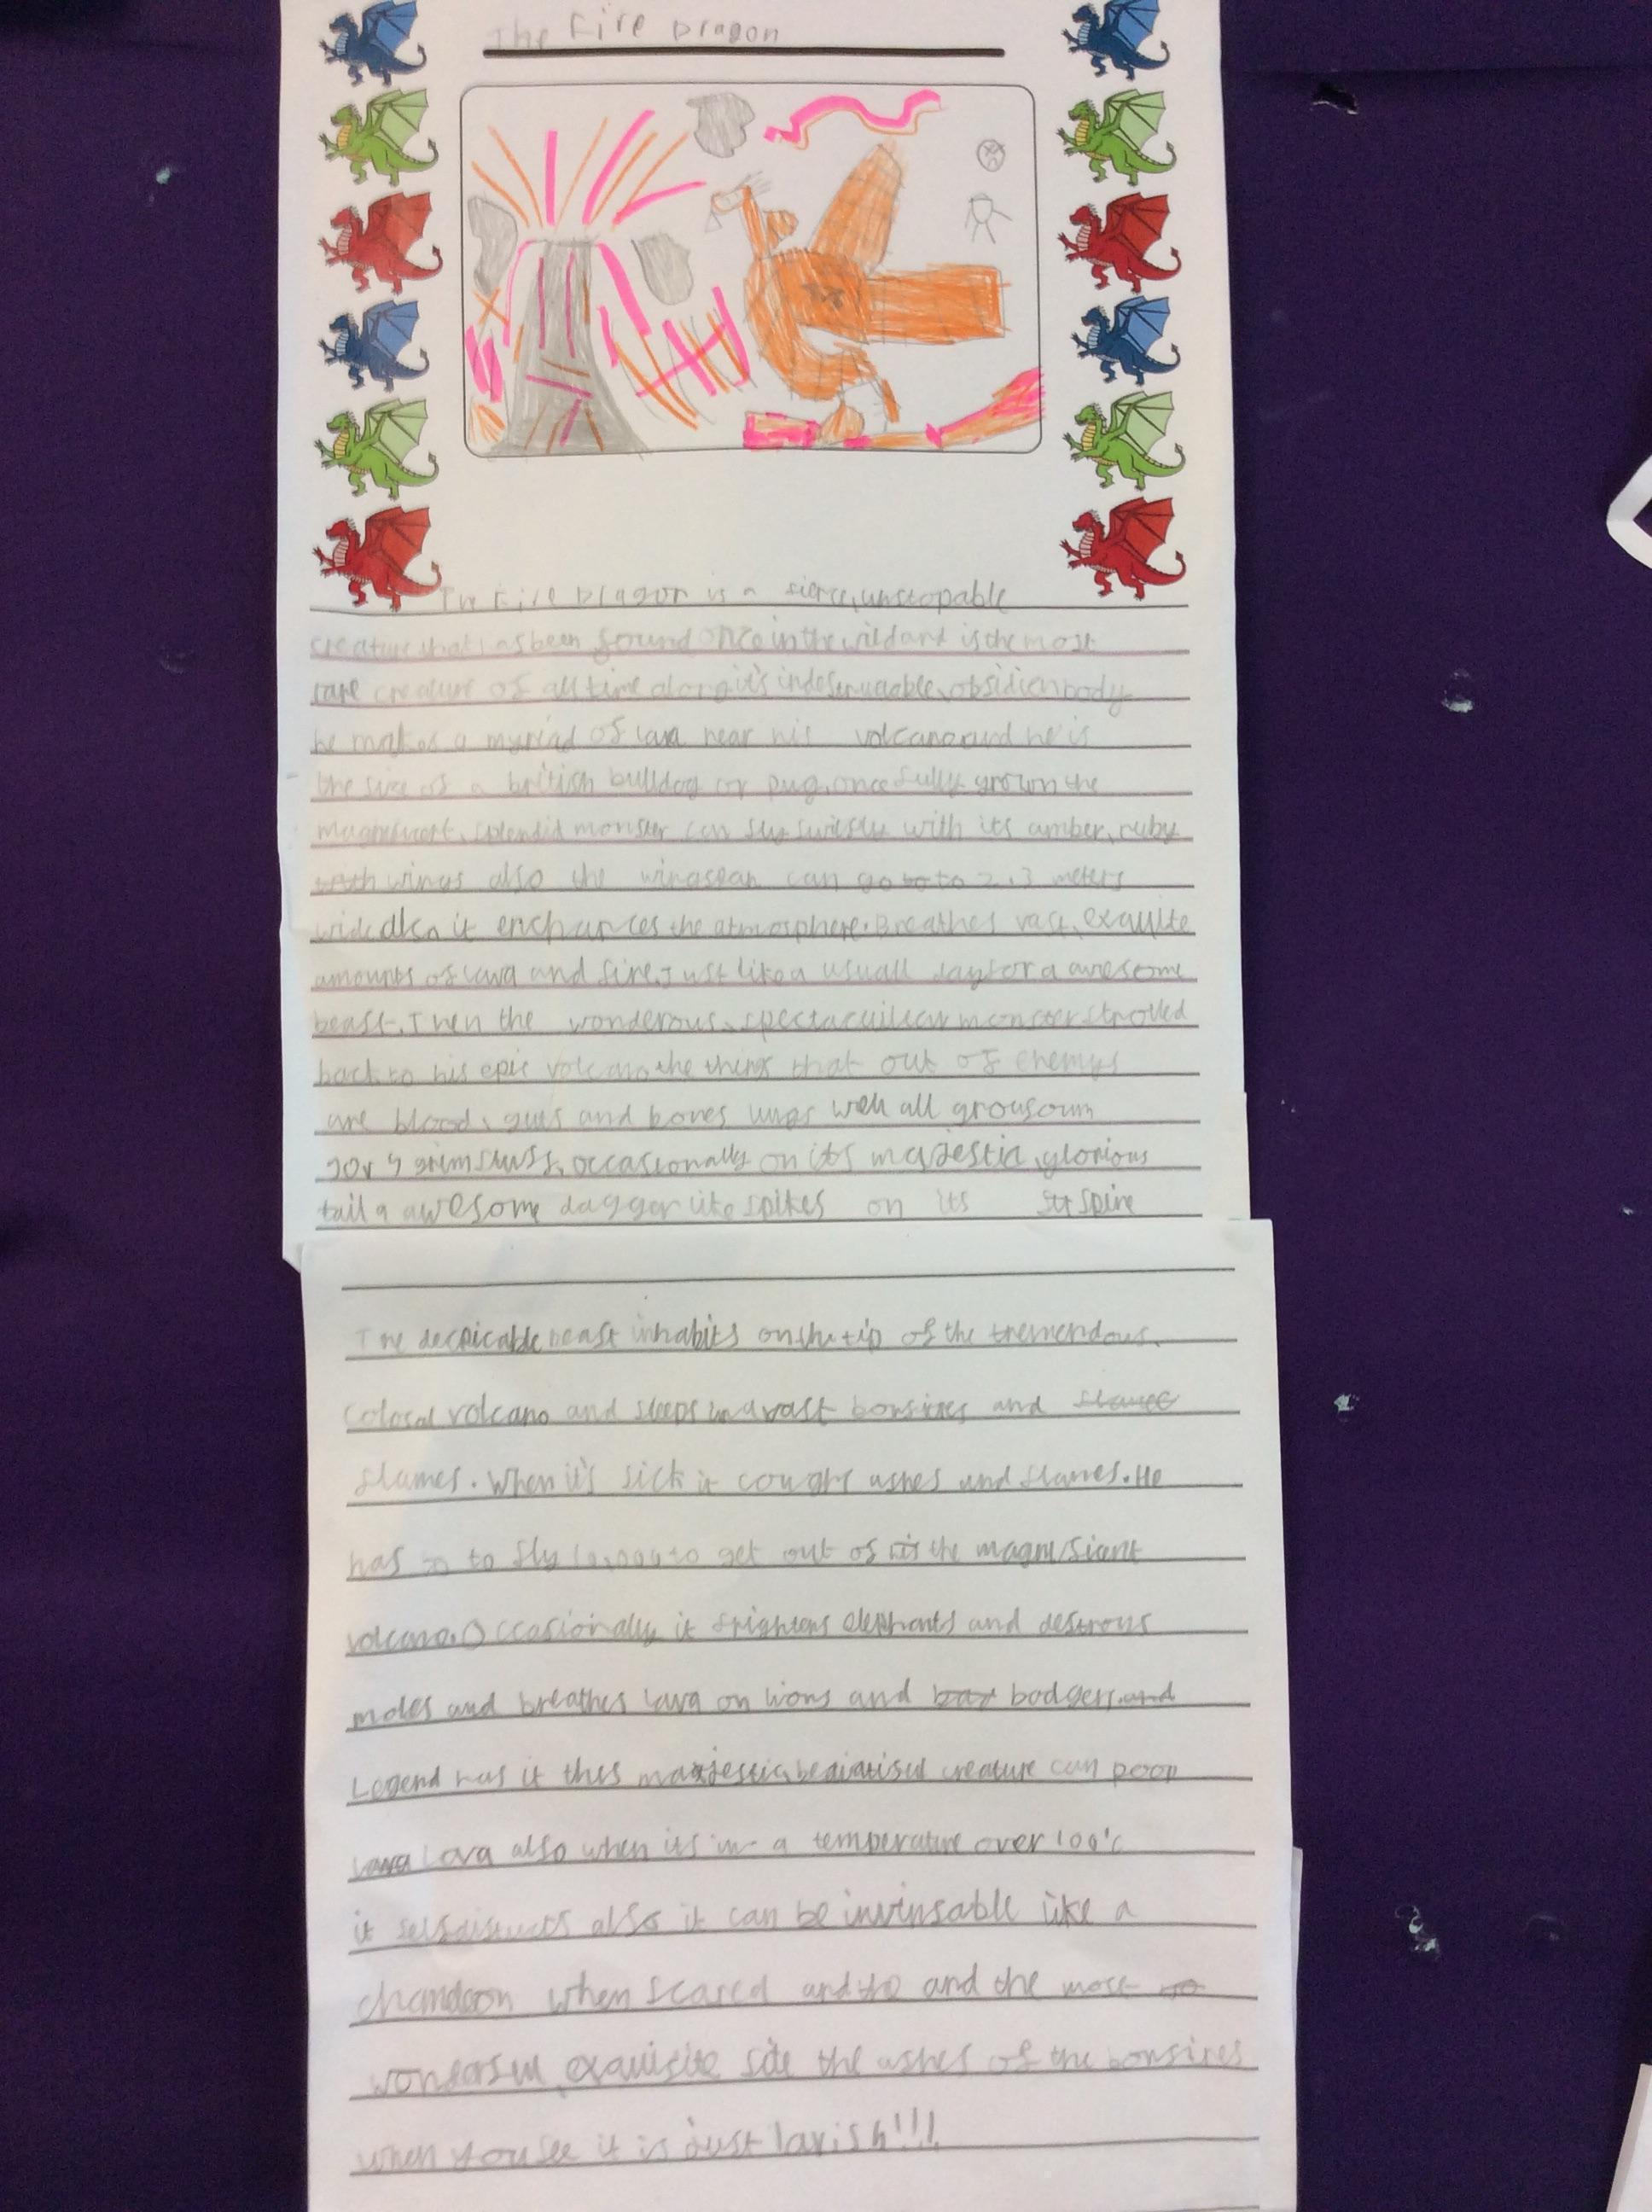 The Fire Dragon
The Fire Dragon is a fierce, unstopable
creature that has been found once in the wild and is the most
rare creature of all time along it's obsidien body
he makes a myriad of lava near his volcano and he is
the size of a british bulldog or pug, once fully grown the
splendid monster can fly swiftly with its amber, ruby
wings also the wingspan can go to 2.3 meters
wide also it enchances the atmosphere. Breathes vast, exquite
amounts of lava and fire. Just like a usuall day for a awesome
beast. Then the wonderous, monster strolled
back to his epic volcano, the things that out of enemys
are blood, guts and bones all
grim stuff, occasionally on its majestic, glorious
tail a awesome dagger like spikes on its spine
The despicable beast inhabits on the tip of the tremendous,
colosal volcano and sleeps in a vast bonfires and
flames. When it's sick it coughs ashes and flames. He
has to fly to get out of the magnificent
volcano. Occasionaly it frightens elephants and destrous
moles and breathes lava on lions and badgers,
Legend has it this majestic, creature can poop
lava also when its in a temperature over 100°c
it also it can be invinsable like a
when scared and the most
exquisite site the ashes of the bonfires
when you see it is just lavish!!!